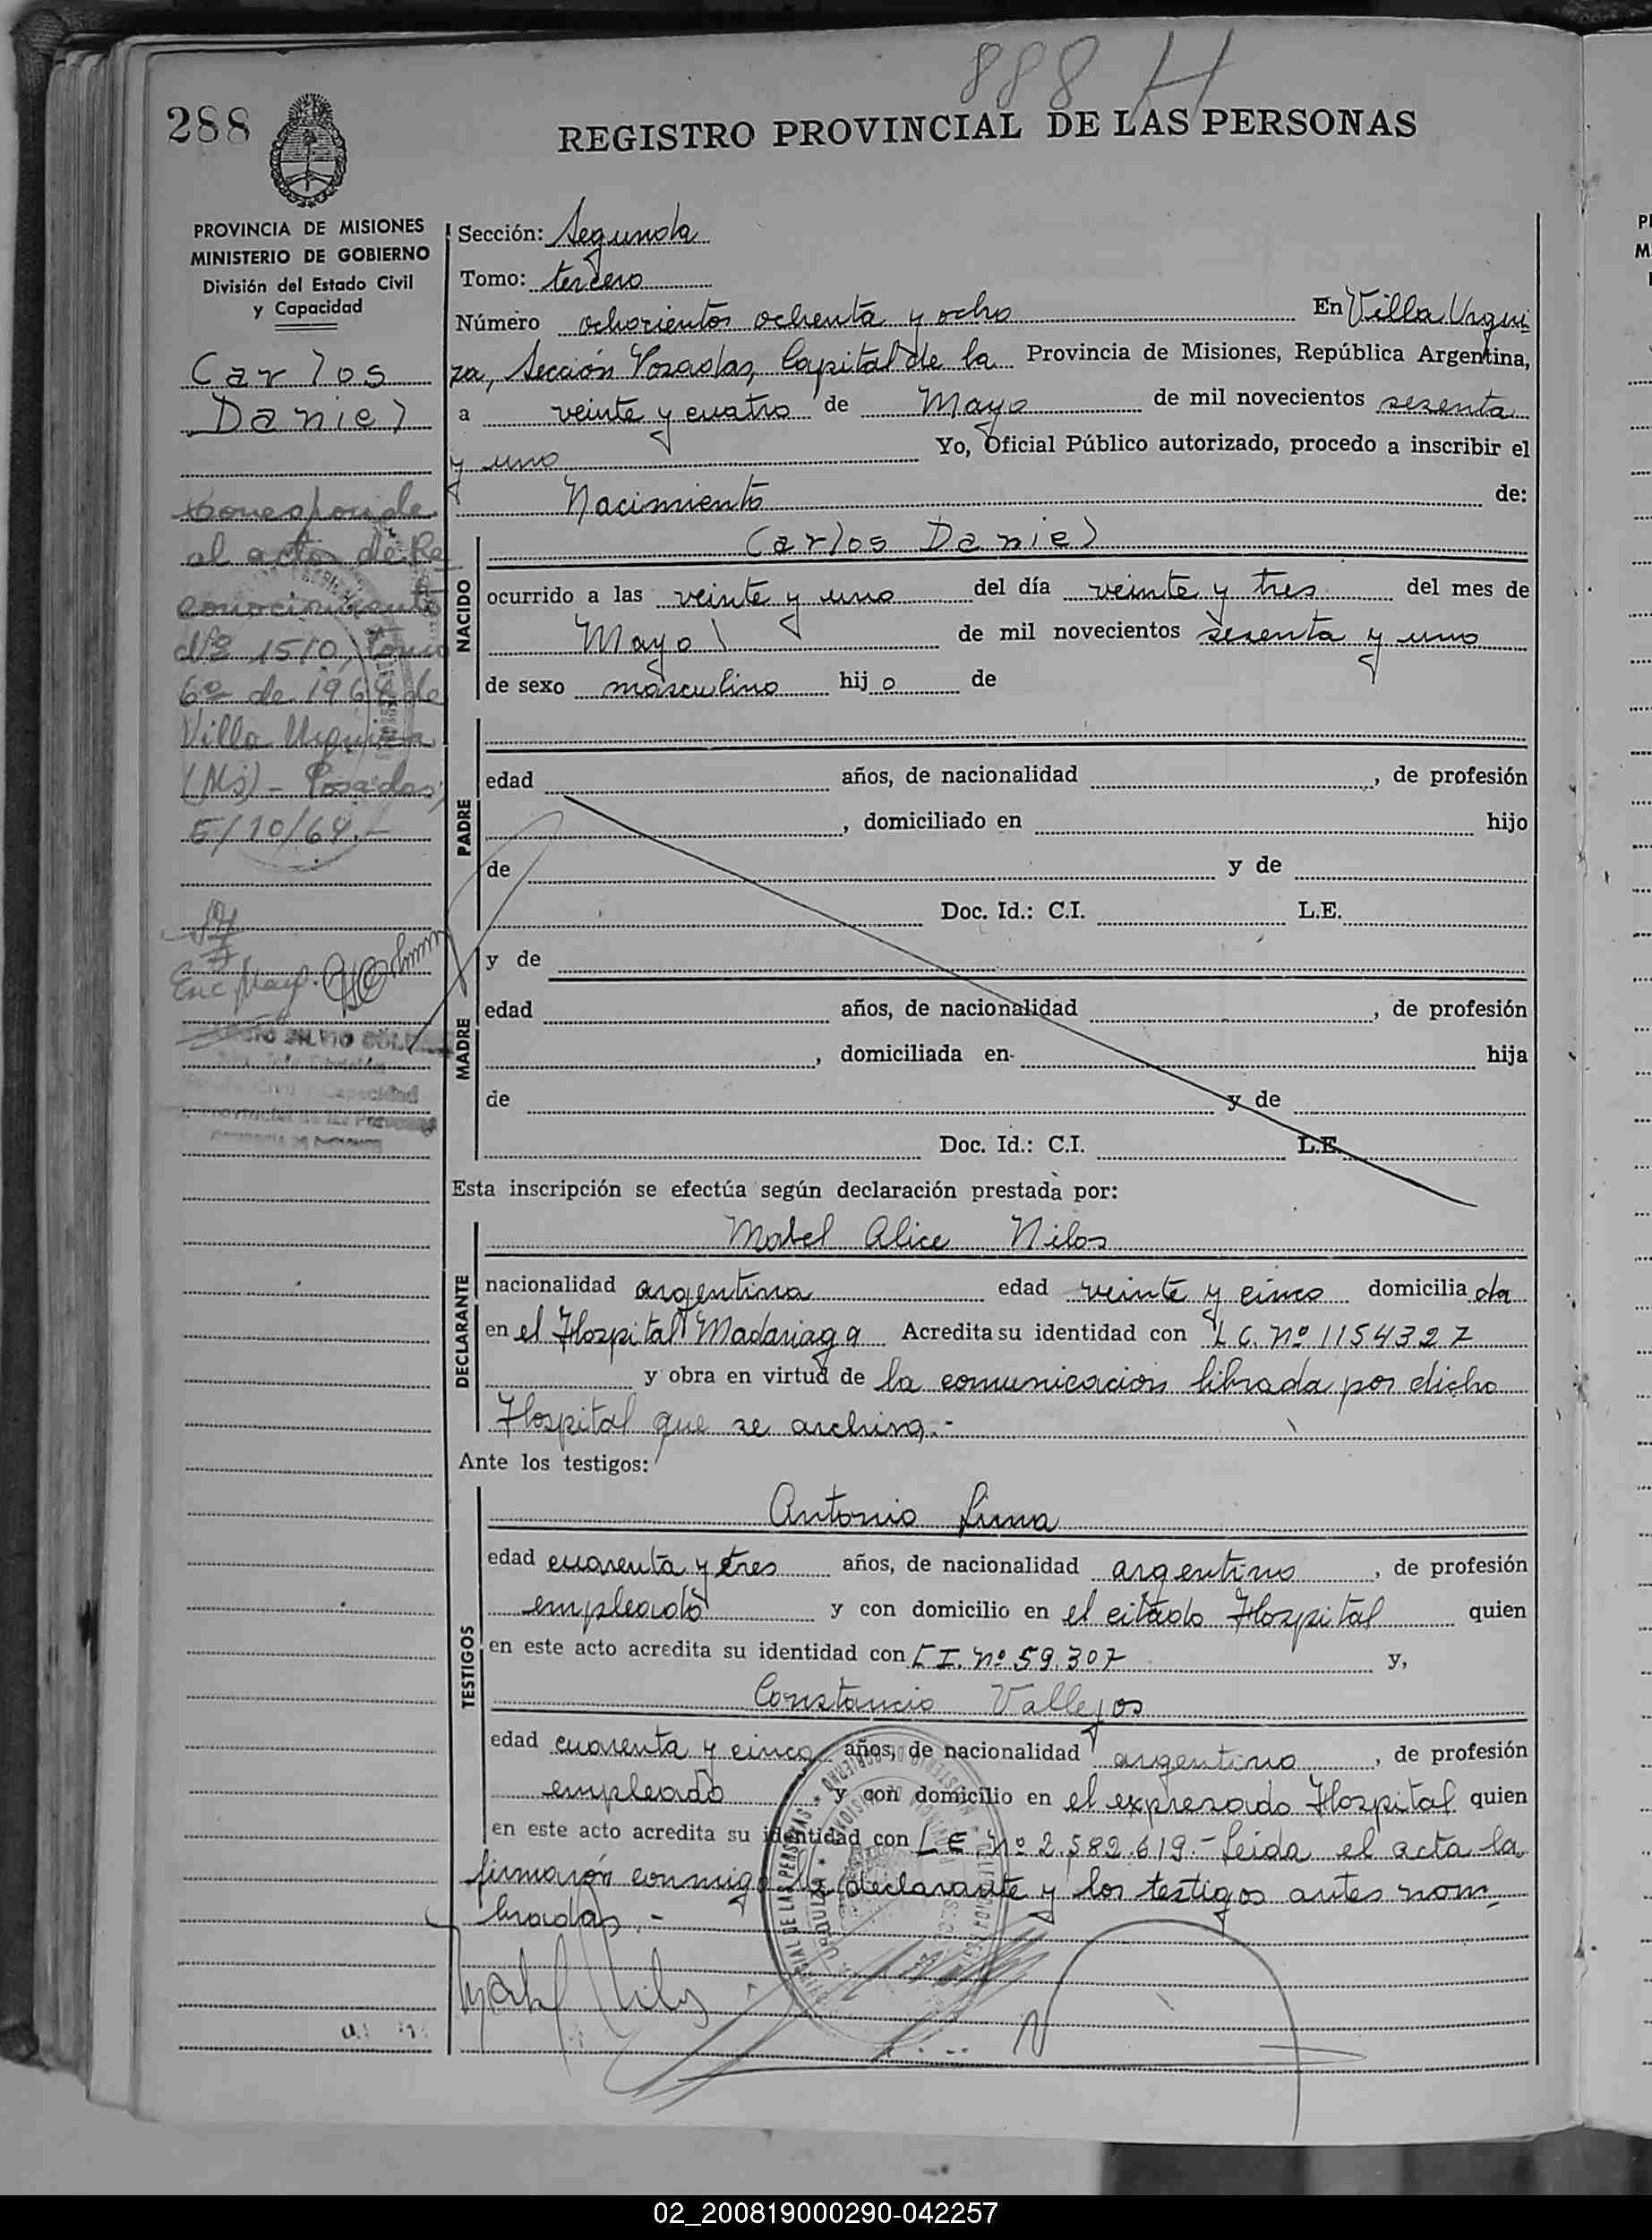 888 H
288
REGISTRO PROVINCIAL DE LAS PERSONAS
PROVINCIA DE MISIONES
MINISTERIO DE GOBIERNO
División del Estado Civil
y Capacidad
Carlos
Daniel
Corresponde
al acto de Re
conocimiento
Nº 1510, tomo
6º de 1964 de
Villa Urquiza
(Ms) - Posadas,
5/10/64.-
Sección: Segunda
Tomo: tercero
Número ochocientos ochenta y ocho En Villa Urqui
za, Sección Posadas, Capital de la Provincia de Misiones, República Argentina,
a veinte y cuatro de Mayo de mil novecientos sesenta
y uno Yo, Oficial Público autorizado, procedo a inscribir el
Nacimiento de:
NACIDO
Carlos Daniel
ocurrido a las veinte y uno del día veinte y tres del mes de
Mayo de mil novecientos sesenta y uno
de sexo masculino hijo de
PADRE
edad años, de nacionalidad , de profesión
, domiciliado en hijo
de y de
Doc. Id.: C.I. L.E.
MADRE
y de
edad años, de nacionalidad , de profesión
, domiciliada en hija
de y de
Doc. Id.: C.I. L.E.
Esta inscripción se efectúa según declaración prestada por:
DECLARANTE
Mabel Alice Nilos
nacionalidad argentina edad veinte y cinco domiciliada
en el Hospital Madariaga Acredita su identidad con L C. Nº 1154327
y obra en virtud de la comunicación librada por dicho
Hospital que se archiva.-
Ante los testigos:
TESTIGOS
Antonio Luna
edad cuarenta y tres años, de nacionalidad argentino , de profesión
empleado y con domicilio en el citado Hospital quien
en este acto acredita su identidad con C I. Nº 59.307 y,
Constancio Vallejos
edad cuarenta y cinco años, de nacionalidad argentino , de profesión
empleado y con domicilio en el expresado Hospital quien
en este acto acredita su identidad con L E. Nº 2.582.619.- Leida el acta la
firmaron conmigo la declarante y los testigos antes nom
brados.-
Mabel Nilos
02_200819000290-042257